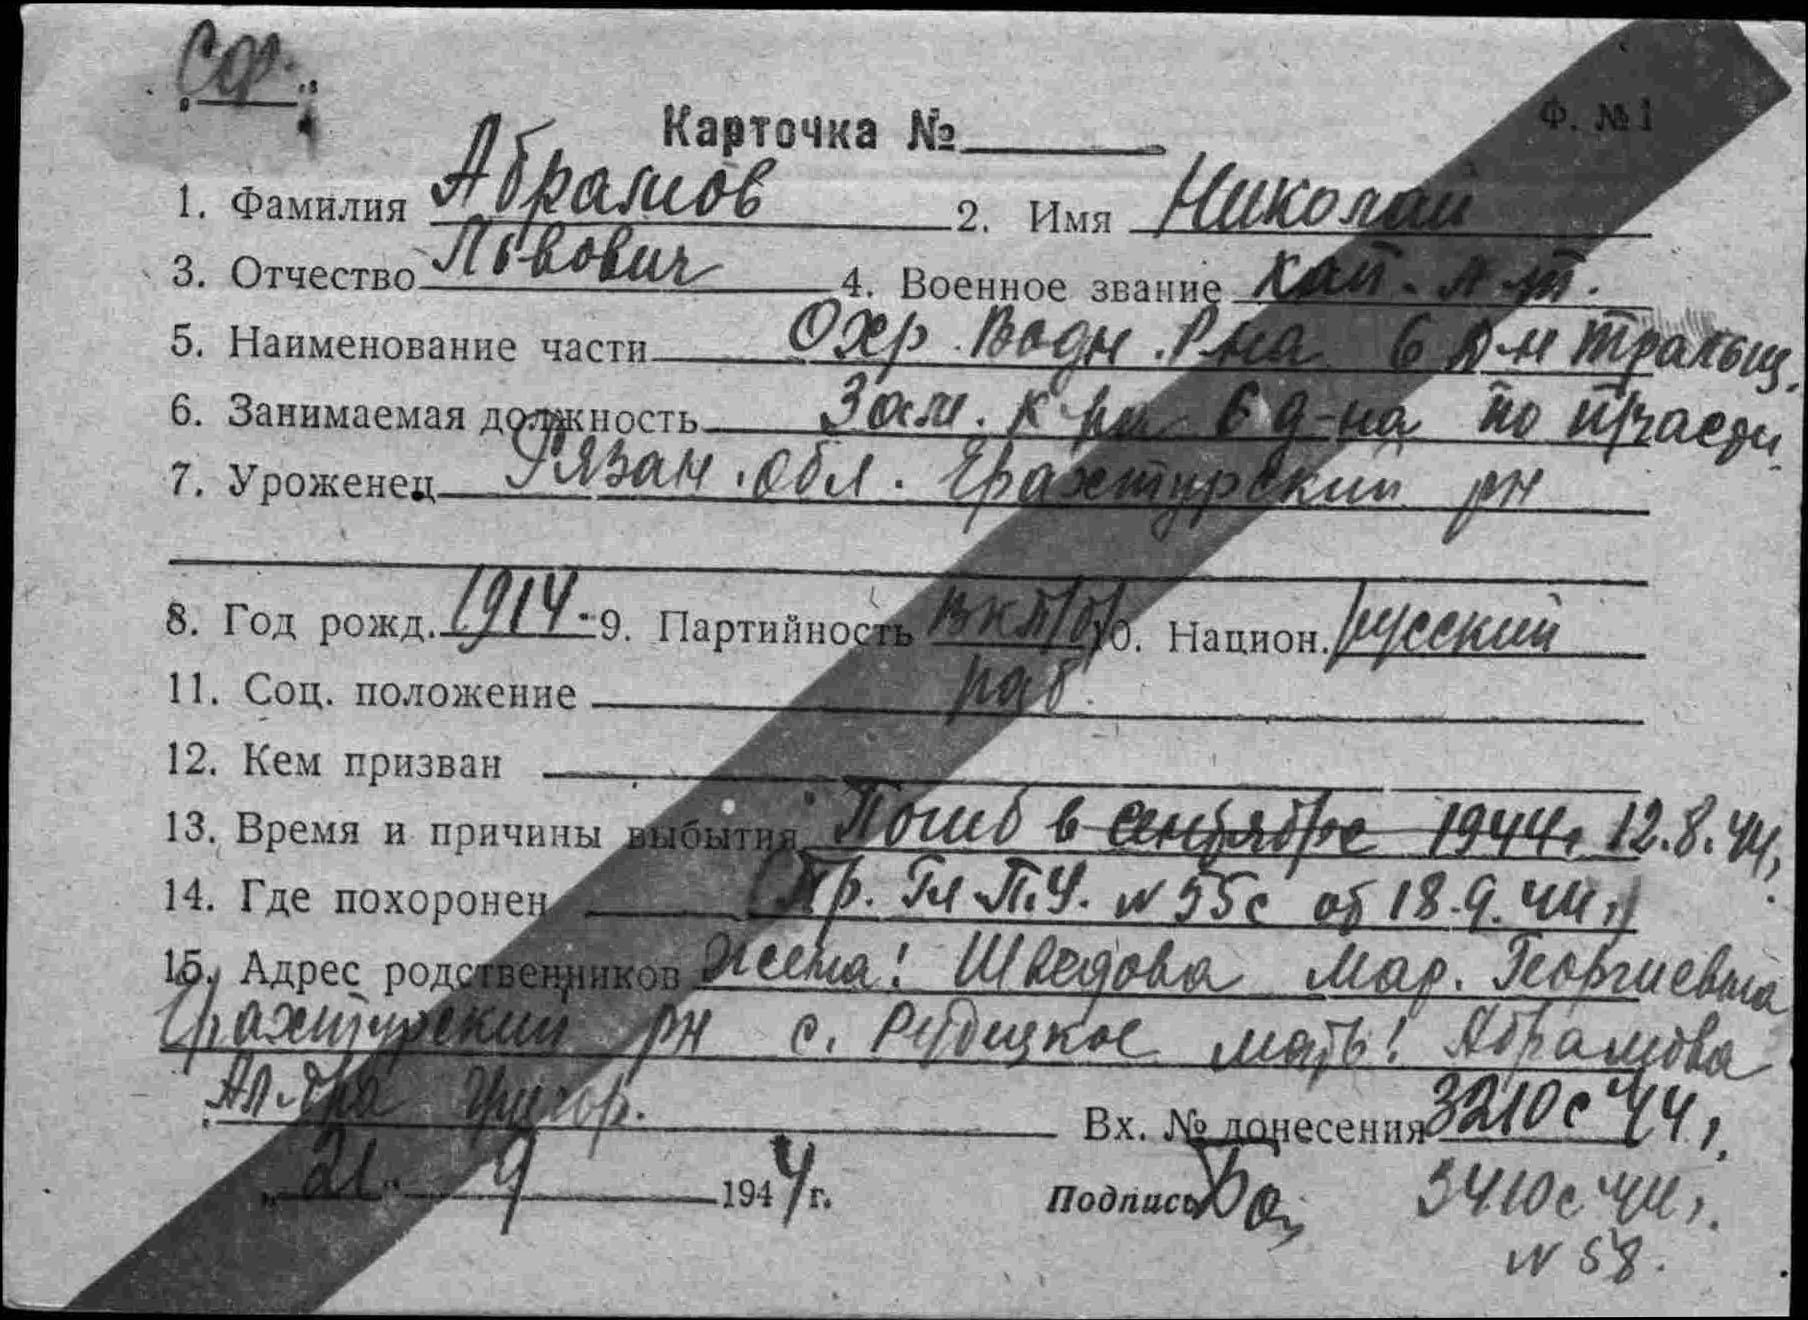 СФ.
Карточка №
Ф. №1
1. Фамилия Абрамов 2. Имя Николай
3. Отчество Львович 4. Военное звание кап. л-т.
5. Наименование части Охр. Водн. Р-на 6 д-н тральщ.
6. Занимаемая должность Зам. к-ра 6 д-на по п/части
7. Уроженец Рязан. обл. Ерахтурский рн
8. Год рожд. 1914. 9. Партийность ВКП/б/ 10. Национ. русский
11. Соц. положение раб.
12. Кем призван
13. Время и причины выбытия Погиб в сентябре 1944г. 12.8.44г.
14. Где похоронен (Пр. Гл П.У. № 55с от 18.9.44г.)
15. Адрес родственников Жена: Шведова Мар. Георгиевна
Ерахтурский рн с. мать: Абрамова
Ал-дра Григор.
Вх. № донесения 3210с 44г.
"21" 9 1944г. Подпись
3410с 44г.
№ 58.